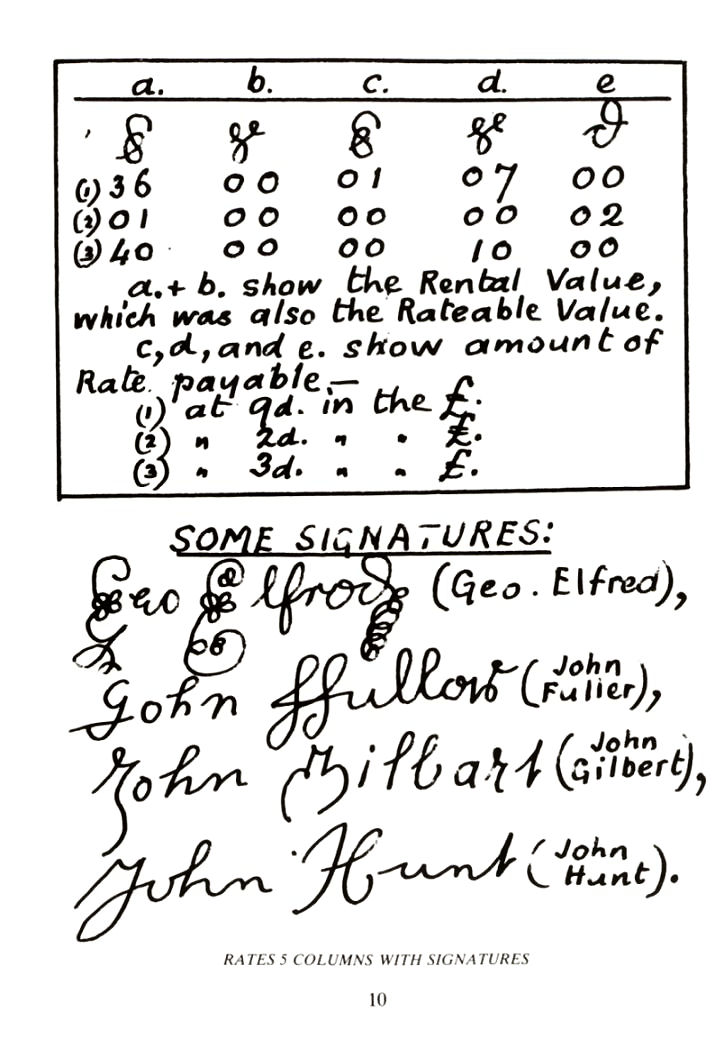 a. b. c. d. e
(1) 36 00 01 07 00
(2) 01 00 00 00 02
(3) 40 00 00 10 00
a. + b. show the Rental Value,
which was also the Rateable Value.
c, d, and e. show amount of
Rate payable.—
(1) at 9d. in the £.
(2) " 2d. " " £.
(3) " 3d. " " £.
SOME SIGNATURES:
Geo Elfrod (Geo. Elfred),
John ffullor (John Fuller),
John Gilbart (John Gilbert),
John Hunt (John Hunt).
RATES 5 COLUMNS WITH SIGNATURES
10